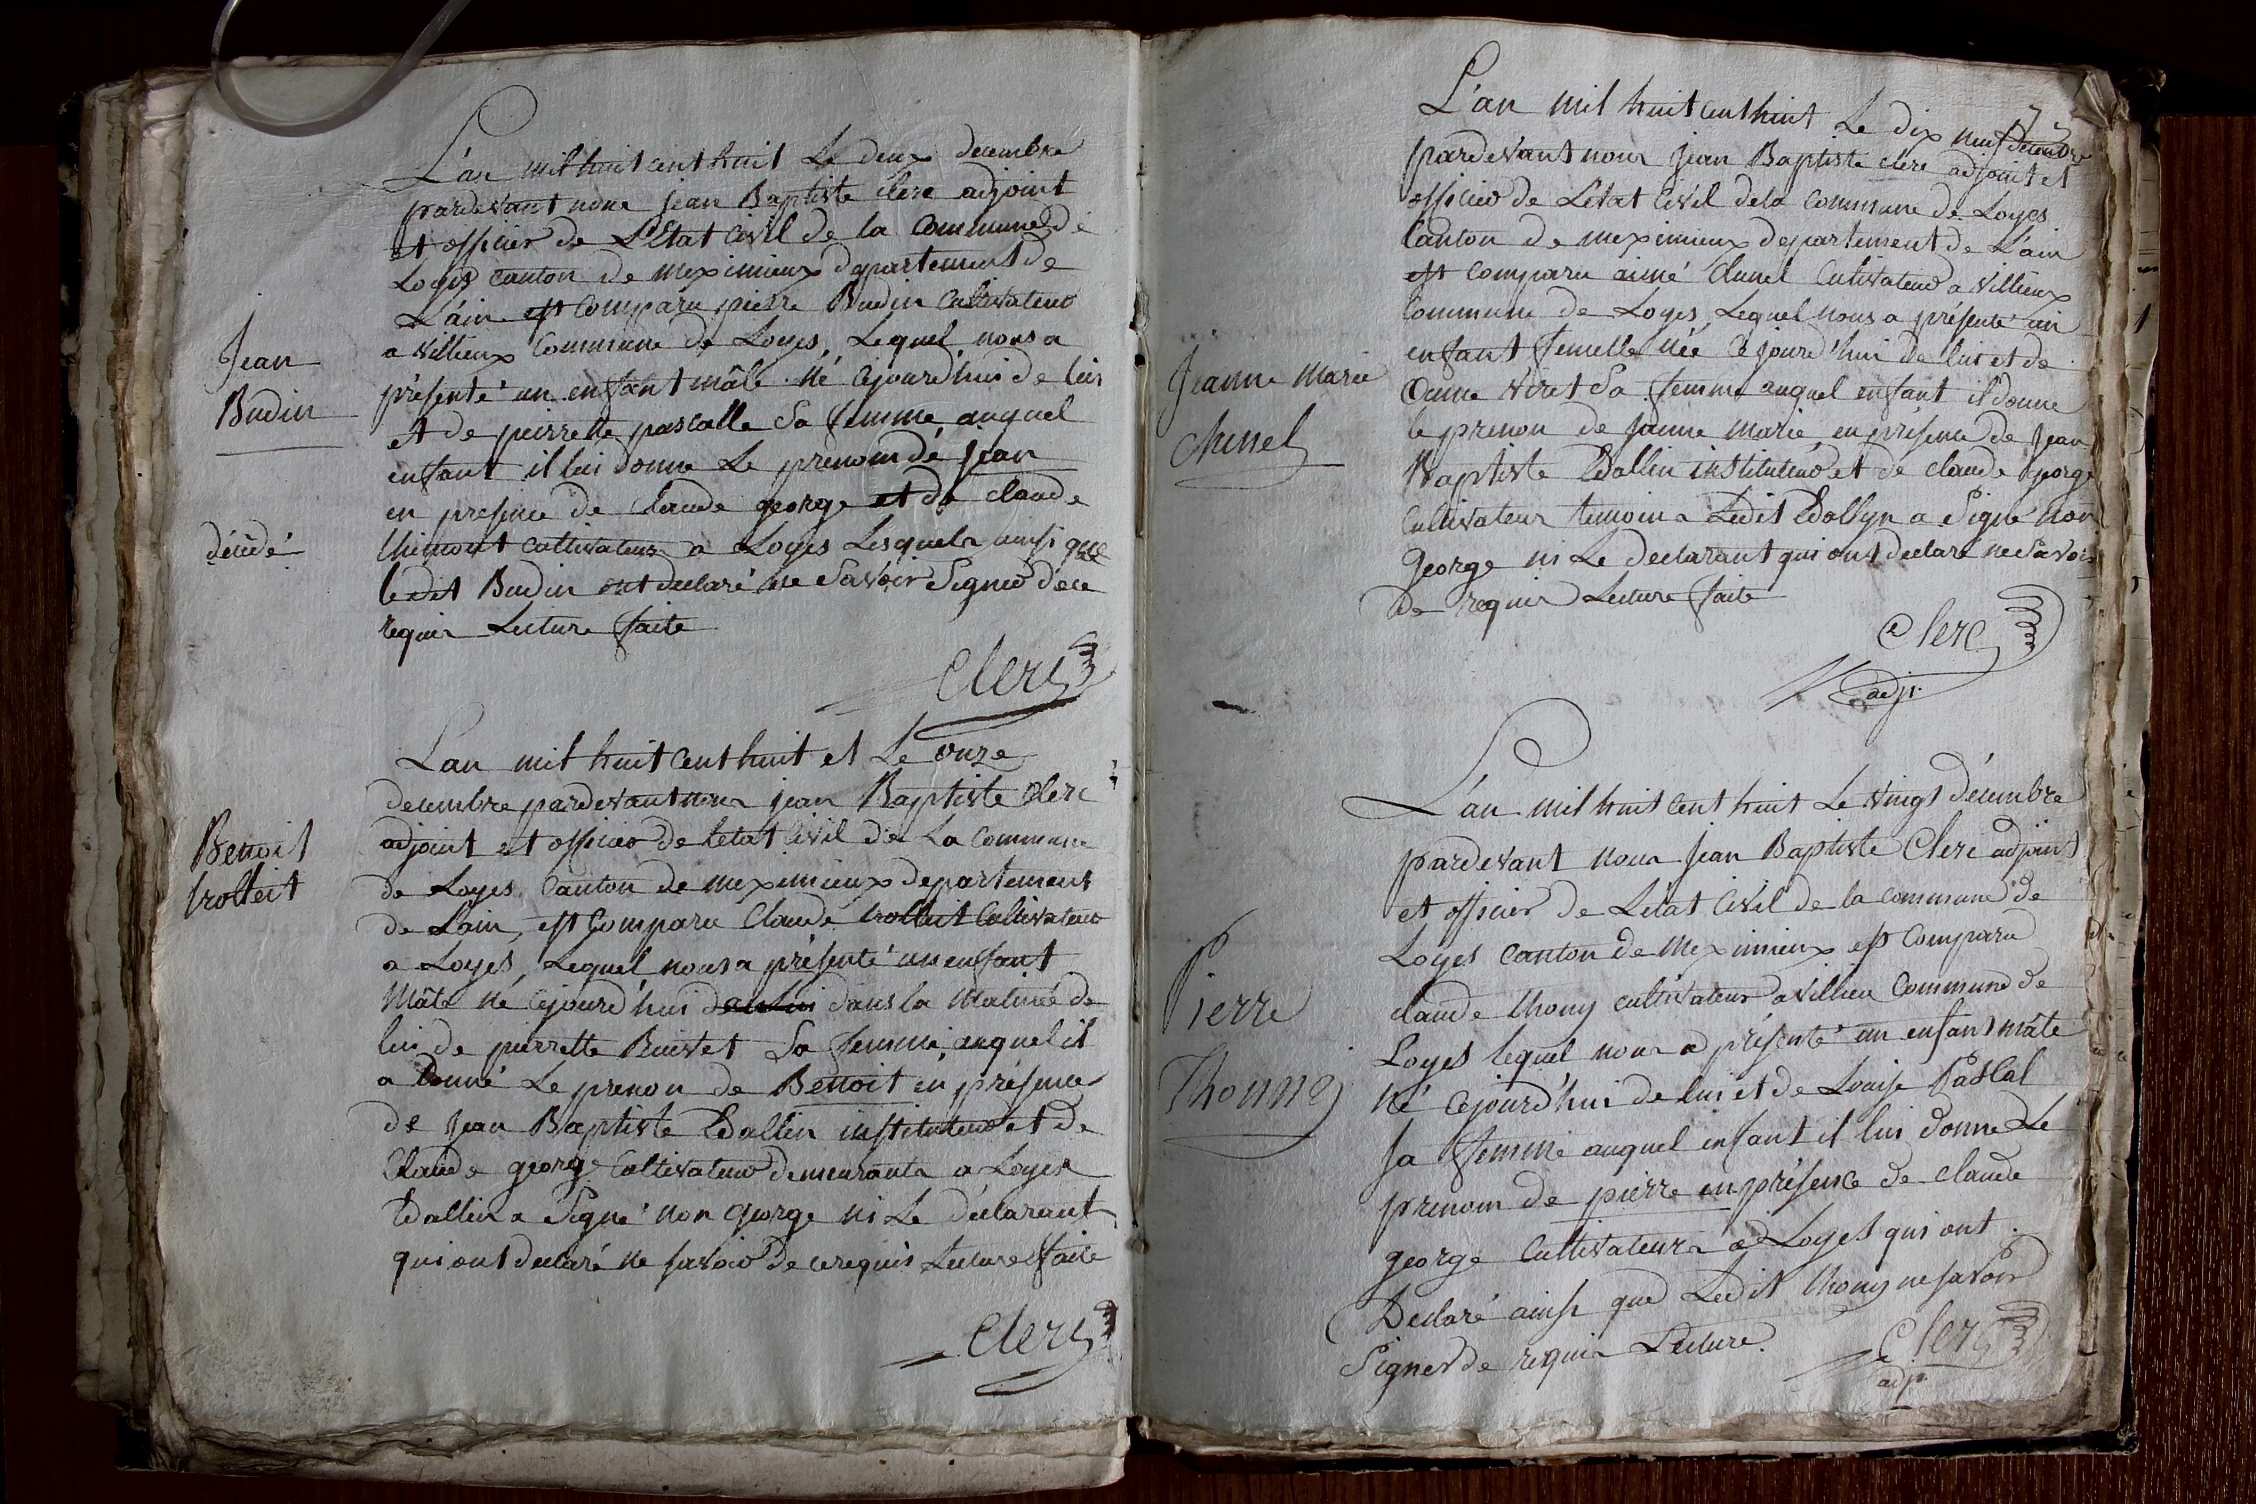 L'an mil huit cent huit Le deux decembre
pardevant nous jean Baptiste clerc adjoint
et officier de L'Etat civil de la Commune de
Loyes canton de meximieux departement de
L'ain est comparu pierre Budin Cultivateur
a villieux Commune de Loyes, Lequel nous a
Jean
présenté un enfant mâle né cejourd'hui de lui
Budin
et de peirrette pascalle Sa femme, auquel
enfant il lui donne Le prenom de Jean
en presence de Claude george et de claude
décédé
cultivateurs a Loyes Lesquels ainsi que
ledit Budin ont declaré ne Savoir Signer de ce
requis Lecture faite
Clerc
L'an mil huit cent huit et Le onze
decembre pardevant nous jean Baptiste Clerc
Benoit
adjoint et officier de letat Civil de La commune
trolleit
de Loyes Canton de meximieux departement
de L'ain, est Comparu Claude trolleit Cultivateur
a Loyes, Lequel nous a présenté un enfant
Mâle né cejourd'hui de lui dans la Matinée de
lui de pierrette Buivet Sa femme, auquel il
a Donné Le prenon de Benoit en présence
de jean Baptiste Dallin instituteur et de
Claude george Cultivateur demeurants a Loyes
Dallin a Signé non george ni Le déclarant
qui ont declaré ne savoir de ce requis Lecture faite
Clerc
L'an mil huit cent huit Le dix neuf decembre
pardevant nous jean Baptiste clerc adjoint et
officier de L'état Civil de la Commune de Loyes
Canton de meximieux departement de L'ain
est comparu aimé Chanel Cultivateur a villieux
Commune de Loyes, Lequel nous a présenté un
enfant femelle née Cejourd'hui de lui et de
Jeanne Marie
viret Sa femme auquel enfant il donne
le prenon de Jeanne Marie, en présence de Jean
Baptiste Dallin instituteur et de claude george
Cultivateur temoins Ledit Dallyn a Signé non
george ni Le declarant qui ont declaré ne Savoir
de requis Lecture faite
Clerc
adj.
L'an mil huit cent huit Le vingt décembre
pardevant nous Jean Baptiste Clerc adjoint
et officier de L'état Civil de la commune de
Loyes canton de Meximieux est Comparu
Pierre
claude thony cultivateur a villieu Commune de
Loyes lequel nous a présenté un enfant mâle
Thonney
né cejourd'hui de lui et de Louise Pascal
sa femme auquel enfant il lui donne Le
prenom de pierre en présence de claude
george Cultivateurs a Loyes qui ont
Declaré ainsi que Ledit thony ne savoir
Signer de requis Lecture.
Clerc
adj.